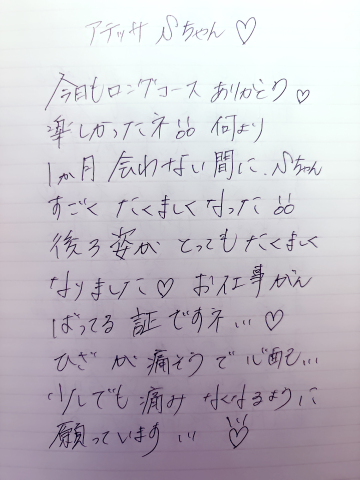 アテッサ Sちゃん ♡
今日もロングコース ありがとう♡
楽しかったネ 何より
1か月 会わない間に、Sちゃん
すごく たくましくなった
後ろ姿が とってもたくましく
なりました♡ お仕事がん
ばってる 証ですネ...♡
ひざ が 痛そうで 心配...
少しでも 痛み なくなるように
願っています... ♡